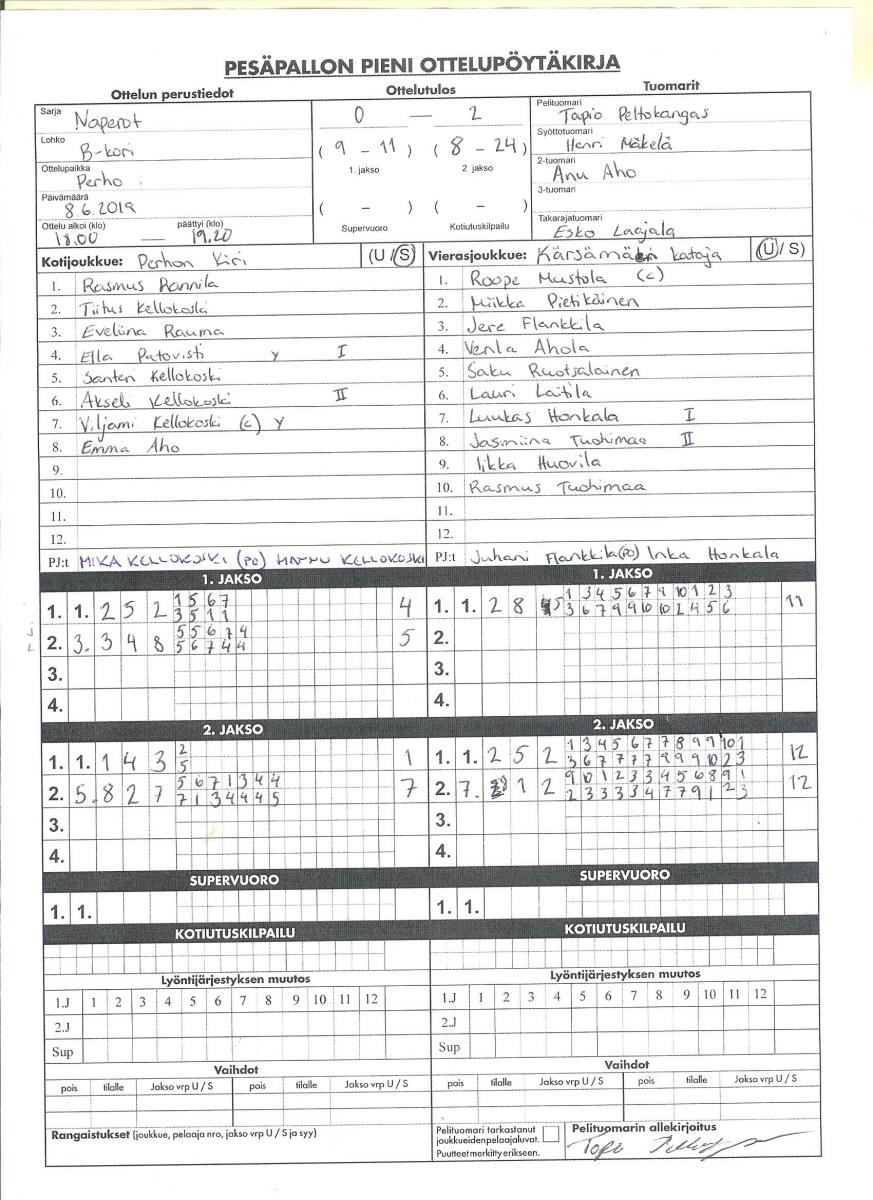 PESÄPALLON PIENI OTTELUPÖYTÄKIRJA
Ottelun perustiedot Ottelutulos Tuomarit
Sarja Naperot 0 — 2 Pelituomari Tapio Peltokangas
Lohko B-kori (9 – 11) (8 – 24) Syöttötuomari Henri Mäkelä
Ottelupaikka Perho 1. jakso 2. jakso 2-tuomari Anu Aho
Päivämäärä 8.6.2019 ( – ) ( – ) 3-tuomari
Ottelu alkoi (klo) päättyi (klo) Supervuoro Kotiutuskilpailu Takarajatuomari Esko Laajala
18.00 — 19.20
Kotijoukkue: Perhon Kiri (U / S) Vierasjoukkue: Kärsämäen katajа (U / S)
1. Rasmus Annila 1. Roope Mustola (c)
2. Tiitus Kellokoski 2. Miikka Pietikäinen
3. Eveliina Rauma 3. Jere Flankkila
4. Ella Patovisti y I 4. Venla Ahola
5. Santeri Kellokoski 5. Saku Ruotsalainen
6. Akseli Kellokoski II 6. Lauri Laitila
7. Viljami Kellokoski (c) y 7. Luukas Honkala I
8. Emma Aho 8. Jasmiina Tuohimaa II
9. 9. Iikka Huovila
10. 10. Rasmus Tuohimaa
11. 11.
12. 12.
PJ:t MIKA KELLOKOSKI (PO) HANNU KELLOKOSKI PJ:t Juhani Flankkila (PO) Inka Honkala
1. JAKSO 1. JAKSO
1 5 6 7 1 3 4 5 6 7 9 10 1 2 3
1. 1. 2 5 2 4 1. 1. 2 8 5 11
3 5 1 1 3 6 7 9 9 10 10 2 4 5 6
5 5 6 7 4
2. 3. 3 4 8 5 2.
5 6 7 4 4
3. 3.
4. 4.
2. JAKSO 2. JAKSO
2 1 3 4 5 6 7 7 8 9 9 10 1
1. 1. 1 4 3 1 1. 1. 2 5 2 12
5 3 6 7 7 7 7 9 9 9 10 2 3
5 6 7 1 3 4 4 9 10 1 2 3 3 4 5 6 8 9 1
2. 5. 8 2 7 7 2. 7. 1 2 12
7 1 3 4 4 4 5 2 3 3 3 3 4 7 7 9 1 2 3
3. 3.
4. 4.
SUPERVUORO SUPERVUORO
1. 1. 1. 1.
KOTIUTUSKILPAILU KOTIUTUSKILPAILU
Lyöntijärjestyksen muutos Lyöntijärjestyksen muutos
1.J 1 2 3 4 5 6 7 8 9 10 11 12 1.J 1 2 3 4 5 6 7 8 9 10 11 12
2.J 2.J
Sup Sup
Vaihdot Vaihdot
pois tilalle Jakso vrp U / S pois tilalle Jakso vrp U / S pois tilalle Jakso vrp U / S pois tilalle Jakso vrp U / S
Rangaistukset (joukkue, pelaaja nro, jakso vrp U / S ja syy) Pelituomari tarkastanut joukkueiden pelaajaluvat. Puutteet merkitty erikseen. Pelituomarin allekirjoitus